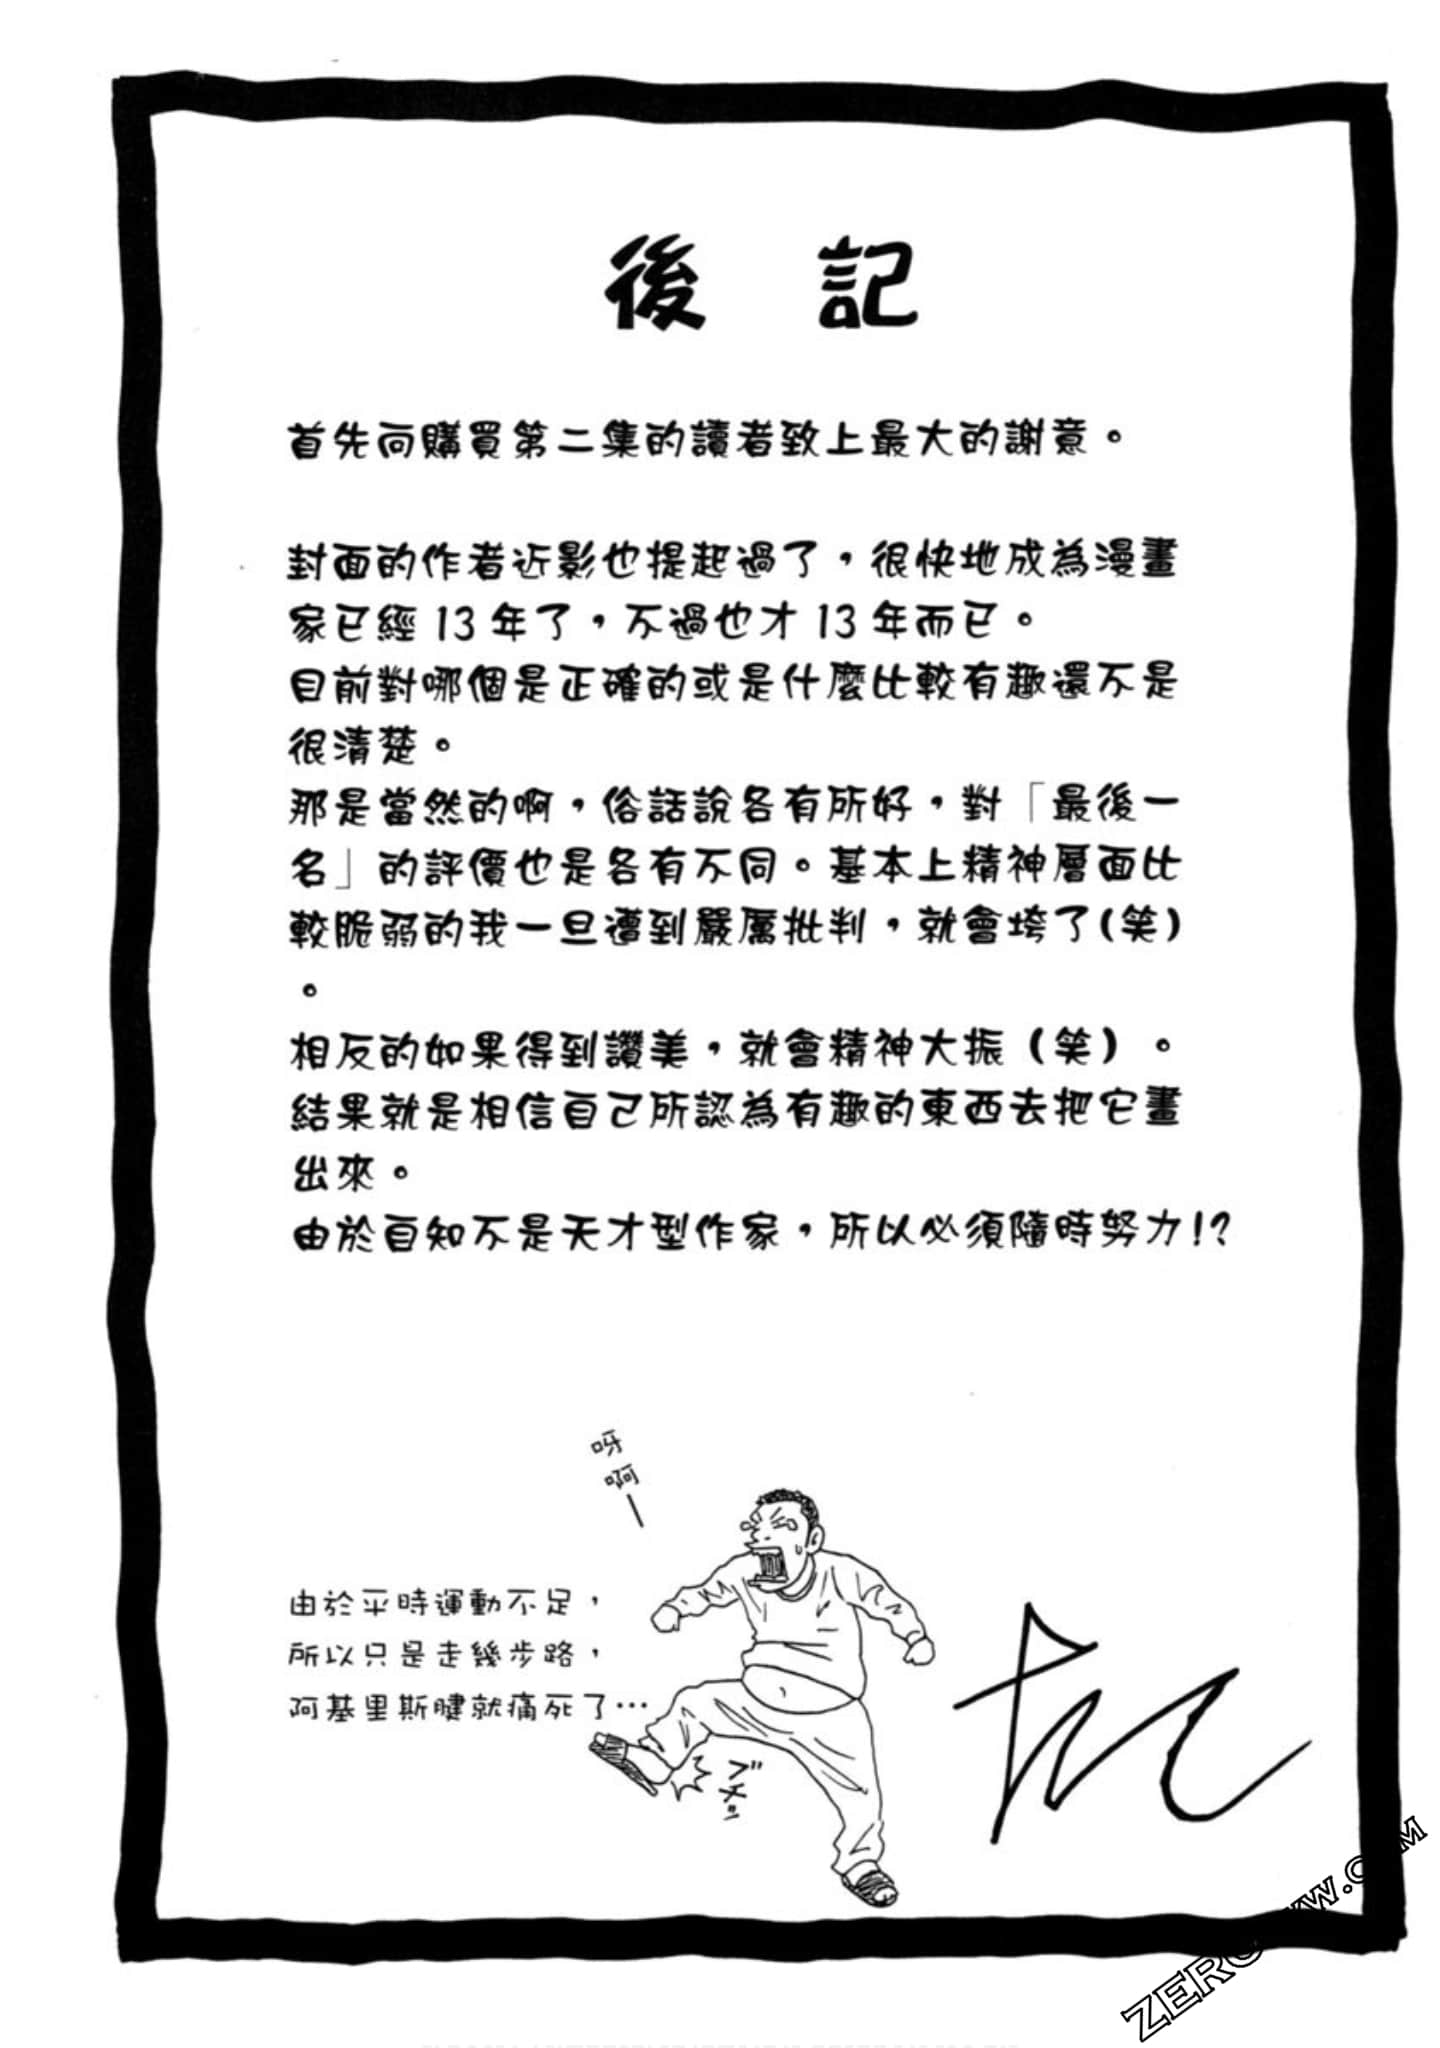 後 記
首先向購買第二集的讀者致上最大的謝意。
封面的作者近影也提起過了，很快地成為漫畫
家已經13年了，不過也才13年而已。
目前對哪個是正確的或是什麼比較有趣還不是
很清楚。
那是當然的啊，俗話說各有所好，對「最後一
名」的評價也是各有不同。基本上精神層面比
較脆弱的我一旦遭到嚴厲批判，就會垮了(笑)
。
相反的如果得到讚美，就會精神大振（笑）。
結果就是相信自己所認為有趣的東西去把它畫
出來。
由於自知不是天才型作家，所以必須隨時努力!?
呀啊—
由於平時運動不足，
所以只是走幾步路，
阿基里斯腱就痛死了…
ブチッ